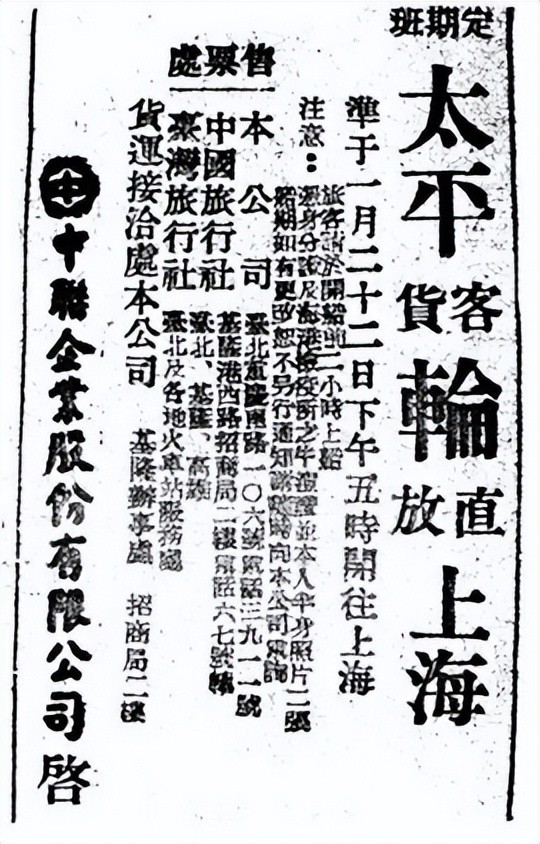 定期班
太平輪直放上海
客貨
準于一月二十二日下午五時開往上海
注意：
旅客請於開船前二小時上船
船期如有更改恕不另行通知
售票處
本公司
臺北重慶南路一〇六號電話三九一一號
基隆港西路招商局二樓電話六七號
中國旅行社
臺北、基隆、高雄
臺灣旅行社
臺北及各地火車站服務處
貨運接洽處本公司 基隆辦事處 招商局二樓
中聯企業股份有限公司啓